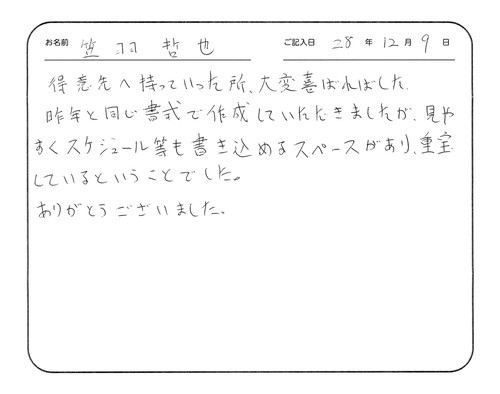 お名前 笠羽 哲也 ご記入日 28 年 12 月 9 日
得意先へ持っていった所、大変喜ばればした。
昨年と同じ書式で作成していただきましたが、見や
すくスケジュール等も書き込めるスペースがあり、重宝
しているということでした。
ありがとうございました。